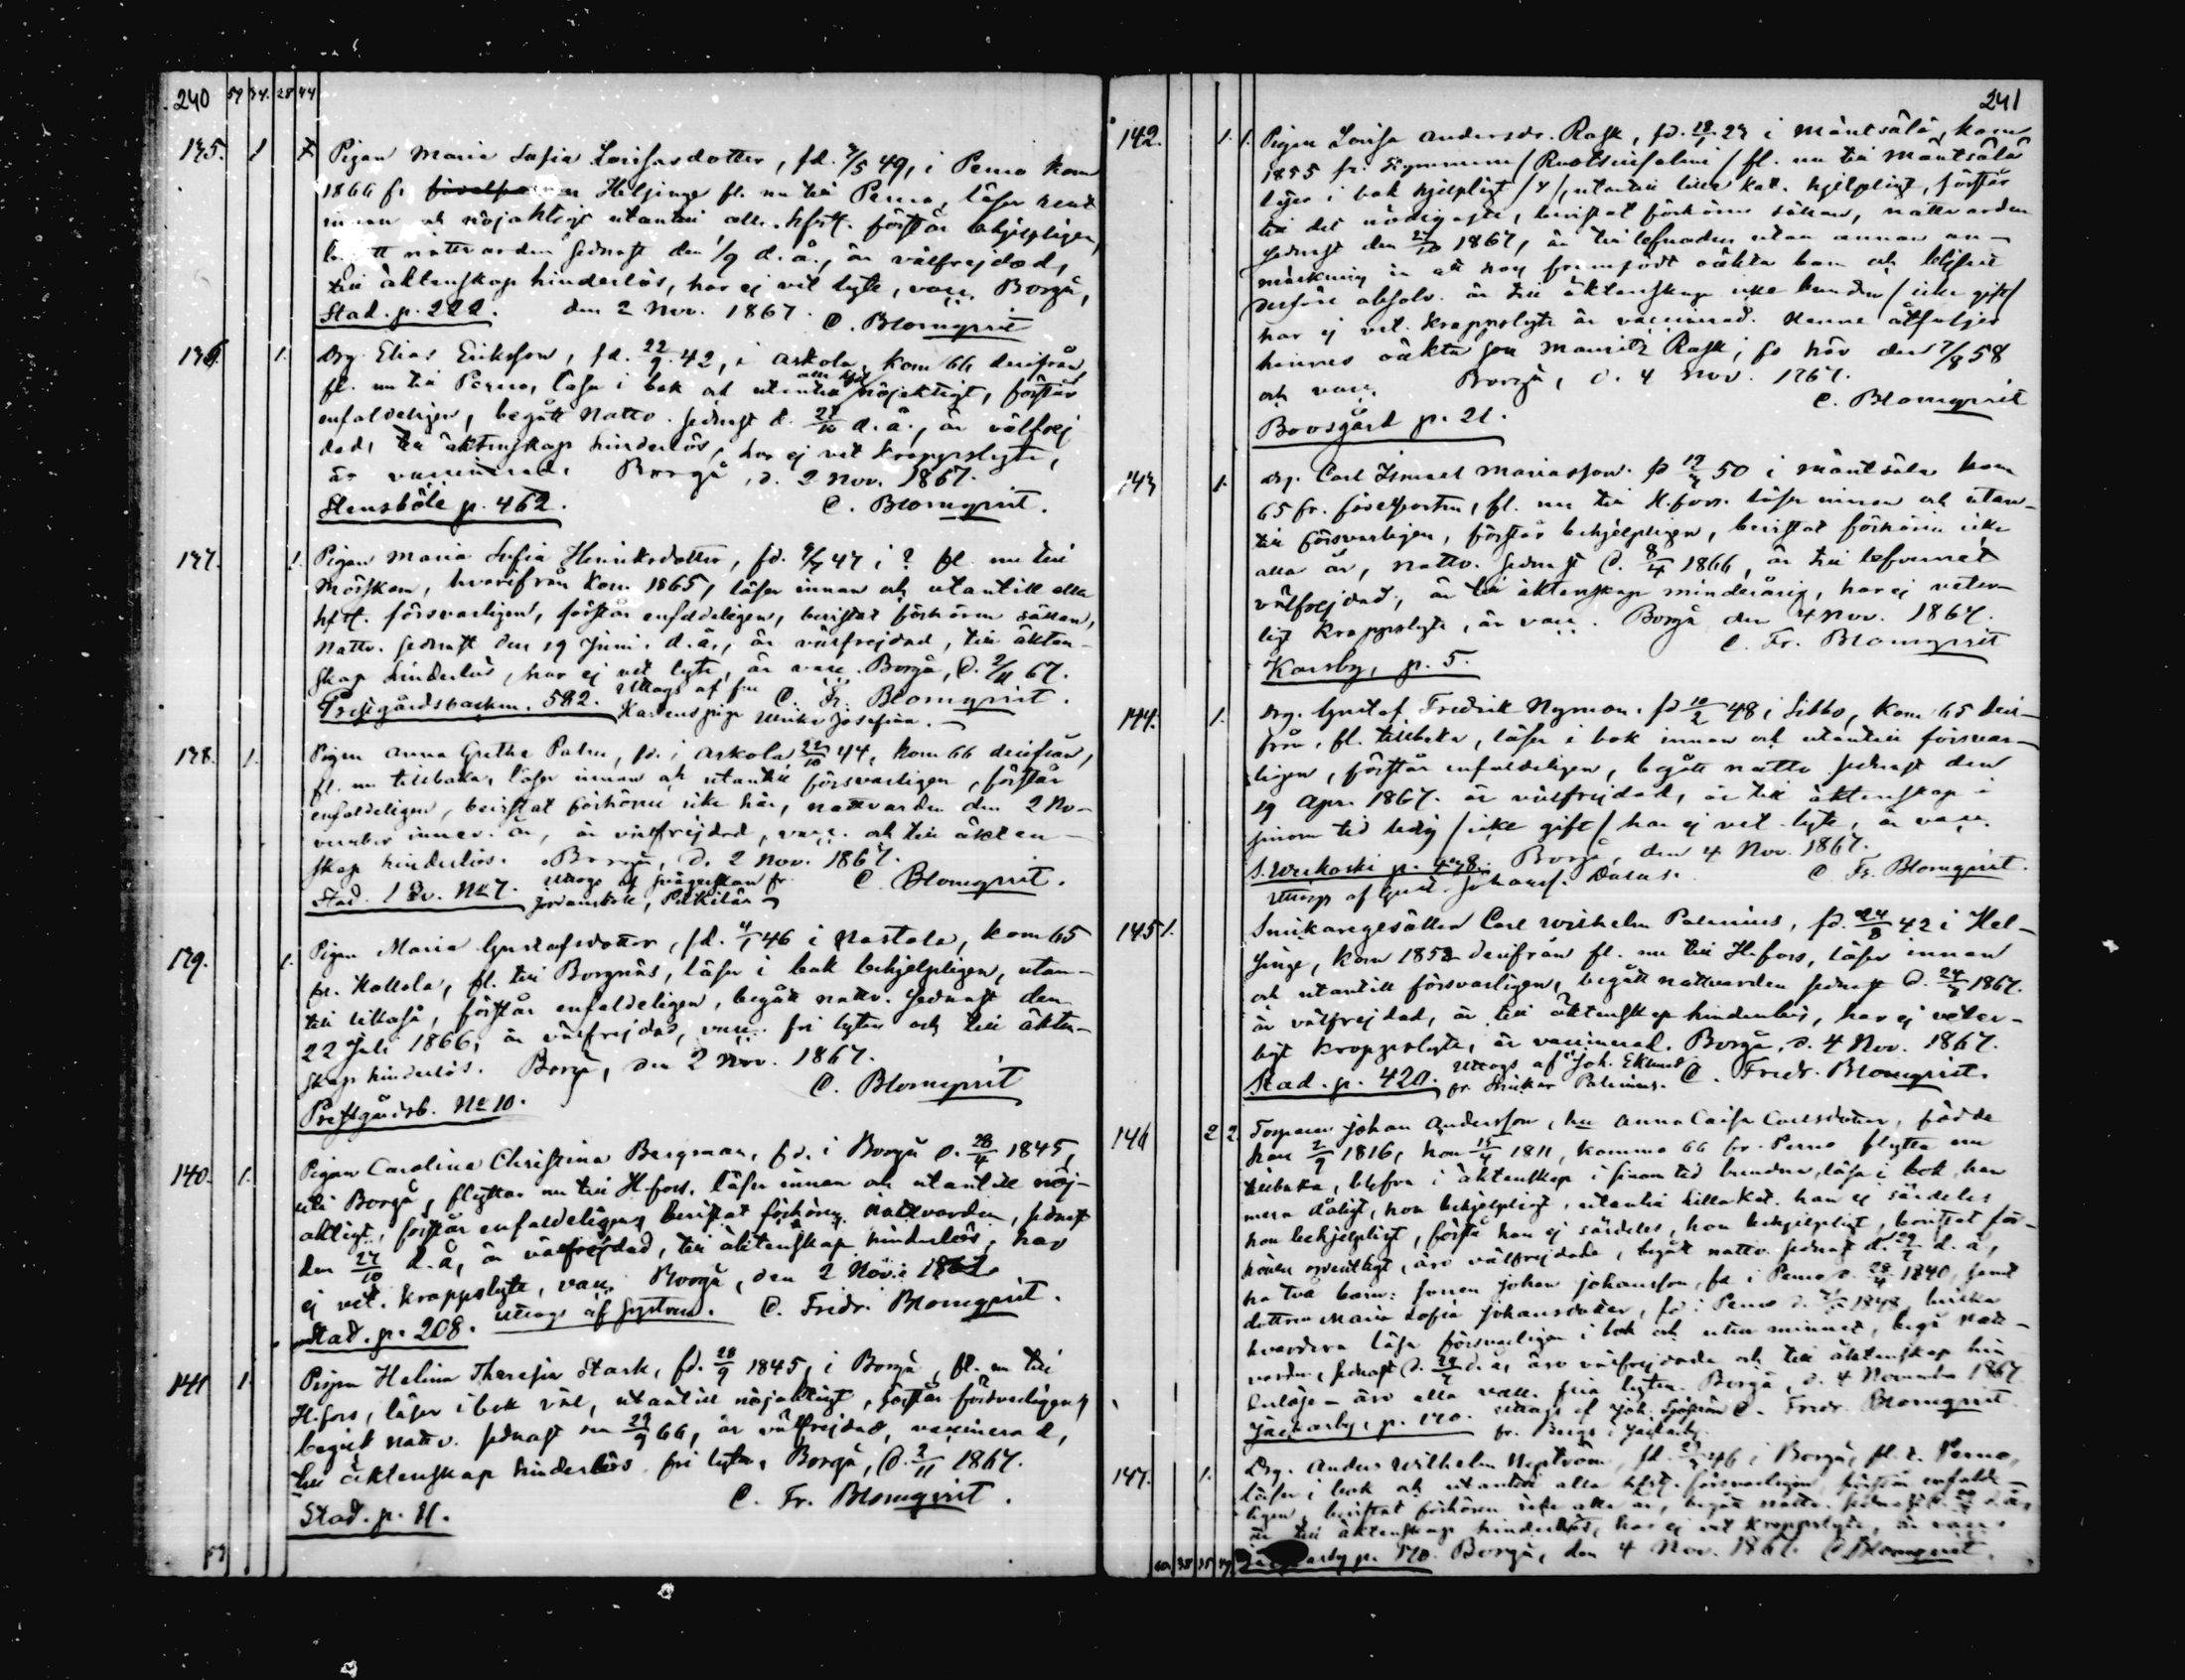 240 59 34. 28 44
135. 1 Pigan Maria Sofia Lovisasdotter, fd. 3/5 49, i Perno kom
1866 fr. Helsinge fl. nu till Perno, läser rent
innan och nöjaktigt utantill förstår behjelpligen,
nattvarden sednast den 1/9 d.å., är välfrejdad,
till äktenskap hinderlös, har ej vet lyte, vacc. Borgå,
Stad. p. 222. den 2 Nov. 1867. C. Blomqvist
136. 1. Drg. Elias Eriksson, fd. 22/9 42, i Askola, kom 66 derifrån,
fl. nu till Perno, läser i bok och utantill nöjaktigt, förstår
enfaldeligen, begått nattv. sednast d. 27/10 d.å., är välfrej
dad, till äktenskap hinderlös, har ej vet kroppslyte,
är vaccinerad. Borgå, d. 2 Nov. 1867.
Stensböle p. 462. C. Blomqvist.
137. 1. Pigan Maria Sofia Henriksdotter, fd. 47 i ? fl. nu till
Mörskom, hvarifrån kom 1865, läser innan och utantill alla
hfst. försvarligen, förstår enfaldeligen, bevistat förhören sällan,
nattv. sednast den 19 Juni d.å., är välfrejdad, till äkten-
skap hinderlös, har ej vet lyte, är vacc. Borgå, d. 2/11 67.
Prestgårdsbacken. 582. Uttags af fru C. Fr. Blomqvist.
pige Ulrika Josefina.
138. 1. Pigan Anna Greta Palm, fd. i Askola 22/10 44, kom 66 derifrån,
fl. nu tillbaka, läser innan och utantill försvarligen, förstår
enfaldeligen, bevistat förhören icke här, nattvarden den 2 No-
vember innev. år, är välfrejdad, vacc. och till äkten-
skap hinderlös. Borgå, d. 2 Nov. 1867.
Stad. No 7. Uttags af C. Blomqvist.
139. 1. Pigan Maria Gustafsdotter, fd. 4/1 46 i Nastola, kom 65
fr. Hollola, fl. till Borgnäs, läser i bok behjelpligen, utan-
till lillkat, förstår enfaldeligen, begått nattv. sednast den
22 Juli 1866, är välfrejdad, vacc. fri lyten och till äkten-
skap hinderlös. Borgå, den 2 Nov. 1867.
C. Blomqvist
Prestgårdsb. No 10.
140. 1. Pigan Carolina Christina Bergman, fd. i Borgå d. 28/4 1845,
uti Borgå, flyttar nu till H.fors, läser innan och utantill nöj-
aktigt, förstår enfaldeligen, bevistat förhören nattvarden, sednast
den 27/10 d.å, är välfrejdad, till äktenskap hinderlös, har
ej vet. kroppslyte, vacc. Borgå, den 2 Nov. 1867
Stad. p. 208. Uttags af systren. C. Fredr. Blomqvist.
141 1. Pigan Helina Theresia Stark, fd. 28/9 1845, i Borgå, fl. nu till
H.fors, läser i bok väl, utantill nöjaktigt, förstår försvarligen,
begick nattv. sednast den 29/9 66, är välfrejdad, vaccinerad,
till äktenskap hinderlös, fri lyten, Borgå, d. 2/11 1867.
C. Fr. Blomqvist.
Stad. p. 11.
241
142. 1. 1. Pigan Lovisa Andersdr. Rask, fd. 27 i Mäntsälä, kom
1855 fr. (Ruotsinsalmi) fl. nu till Mäntsälä
läser i bok hjelpligt, utantill lilla kat. hjelpligt, förstår
till det nödigaste, bevistat förhören sällan, nattvarden
sednast den 27/10 1867, är till lefnaden utan annan an-
märkning än att hon framfödt oäkta barn och blifvit
derföre absolv. är till äktenskap icke bunden (icke gift)
har ej vet. kroppslyte är vaccinerad. Henne åtföljer
hennes oäkta son Mauritz Rask, fd här den 7/8 58
och vacc. Borgå, d. 4 Nov. 1867.
C. Blomqvist
Boösgård p. 21.
143 1. Drg. Carl Ismael Mariasson. fd 50 i Mäntsälä kom
65 fr. fl. nu till H.fors. läser innan och utan-
till försvarligen, förstår behjelpligen, bevistat förhören icke
alla år, nattv. sednast d. 8/4 1866, är till lefvernet
välfrejdad, är till äktenskap minderårig, har ej veter-
ligt kroppslyte, är vacc. Borgå den 4 Nov. 1867.
C. Fr. Blomqvist
Karsby, p. 5.
144. 1. Drg. Gustaf Fredrik Nyman. fd 10/2 48 i Sibbo, kom 65 deri-
från, fl. tillbaka, läser i bok innan och utantill försvar-
ligen, förstår enfaldeligen, begått nattv sednast den
19 Apr. 1867. är välfrejdad, är till äktenskap i
sinom tid ledig (icke gift) har ej vet. lyte, är vacc.
S. Weikoski p. 448. Borgå, den 4 Nov. 1867.
Uttags af Gust. Johanss. C. Fr. Blomqvist.
145 1. Snickaregesällen Carl Wilhelm Palenius, fd. 24/8 42 i Hel-
singe, kom 1852 derifrån fl. nu till H.fors, läser innan
och utantill försvarligen, begått nattvarden sednast d. 1867.
är välfrejdad, är till äktenskap hinderlös, har ej veter-
ligt kroppslyte, är vaccinerad. Borgå, d. 4 Nov. 1867.
Stad. p. 420. Uttags af Joh. Eklund C. Fredr. Blomqvist.
fr. Snickar Palenius.
146 2 2 Torparen Johan Andersson, hu Anna Caisa Carlsdotter, födde
han 2/9 1816, hon 15/4 1811, kommo 66 fr. Perno flytta nu
tillbaka, blefvo i äktenskap i sinom tid bundna, läsa i bok han
mera dåligt, hon behjelpligt, utantill lilla kat. han ej särdeles
hon behjelpligt, förstå han ej särdeles, hon behjelpligt, bevistat för-
hören ordentligt, äro välfrejdade, begått nattv. sednast d. d.å,
ha två barn: sonen Johan Johansson, fd i Perno d. 28/4 1840, samt
dottren Maria Sofia Johansdotter, fd i Perno d. 1848, hvilka
hvardera läsa försvarligen i bok och utur minnet, begå natt-
varden, sednast d. d.å, äro välfrejdade och till äktenskap hin
derlöse – äro alla vacc. fria lyten. Borgå, d. 4 November 1867
Jackarby, p. 170. Uttags af Joh. C. Fredr. Blomqvist
fr. Berga i Jackarby.
147. 1. Drg. Anders Wilhelm Nyström, fd. 46 i Borgå, fl. t. Perno,
läser i bok och utantill alla hfst. försvarligen, förstår enfalde-
ligen, bevistat förhören icke alla år, begått nattv. sednast d.å,
är till äktenskap hinderlös, har ej vet kroppslyte, är vacc.
p. 170. Borgå, den 4 Nov. 1867. C. Blomqvist.